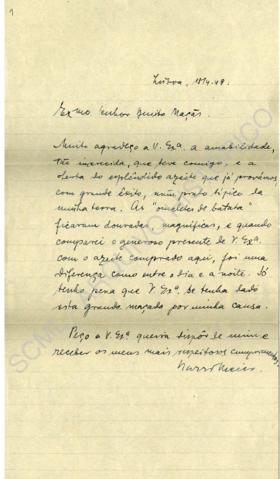 1
Lisboa, 18/4/49.
Exmo. Senhor Benito Maçãs.
Muito agradeço a V. Exª. a amabilidade,
tão imerecida, que teve comigo, e a
oferta do esplêndido azeite que já provámos
com grande êxito, num prato típico da
minha terra. As "omeletes de batata"
ficaram douradas, magníficas, e quando
comparei o generoso presente de V Exª
com o azeite comprado aqui, foi uma
diferença como entre o dia e a noite. Só
tenho pena que V Exª. se tenha dado
esta grande maçada por minha causa.
Peço a V. Exª queira dispôr de mim e
receber os meus mais respeitosos cumprimentos,